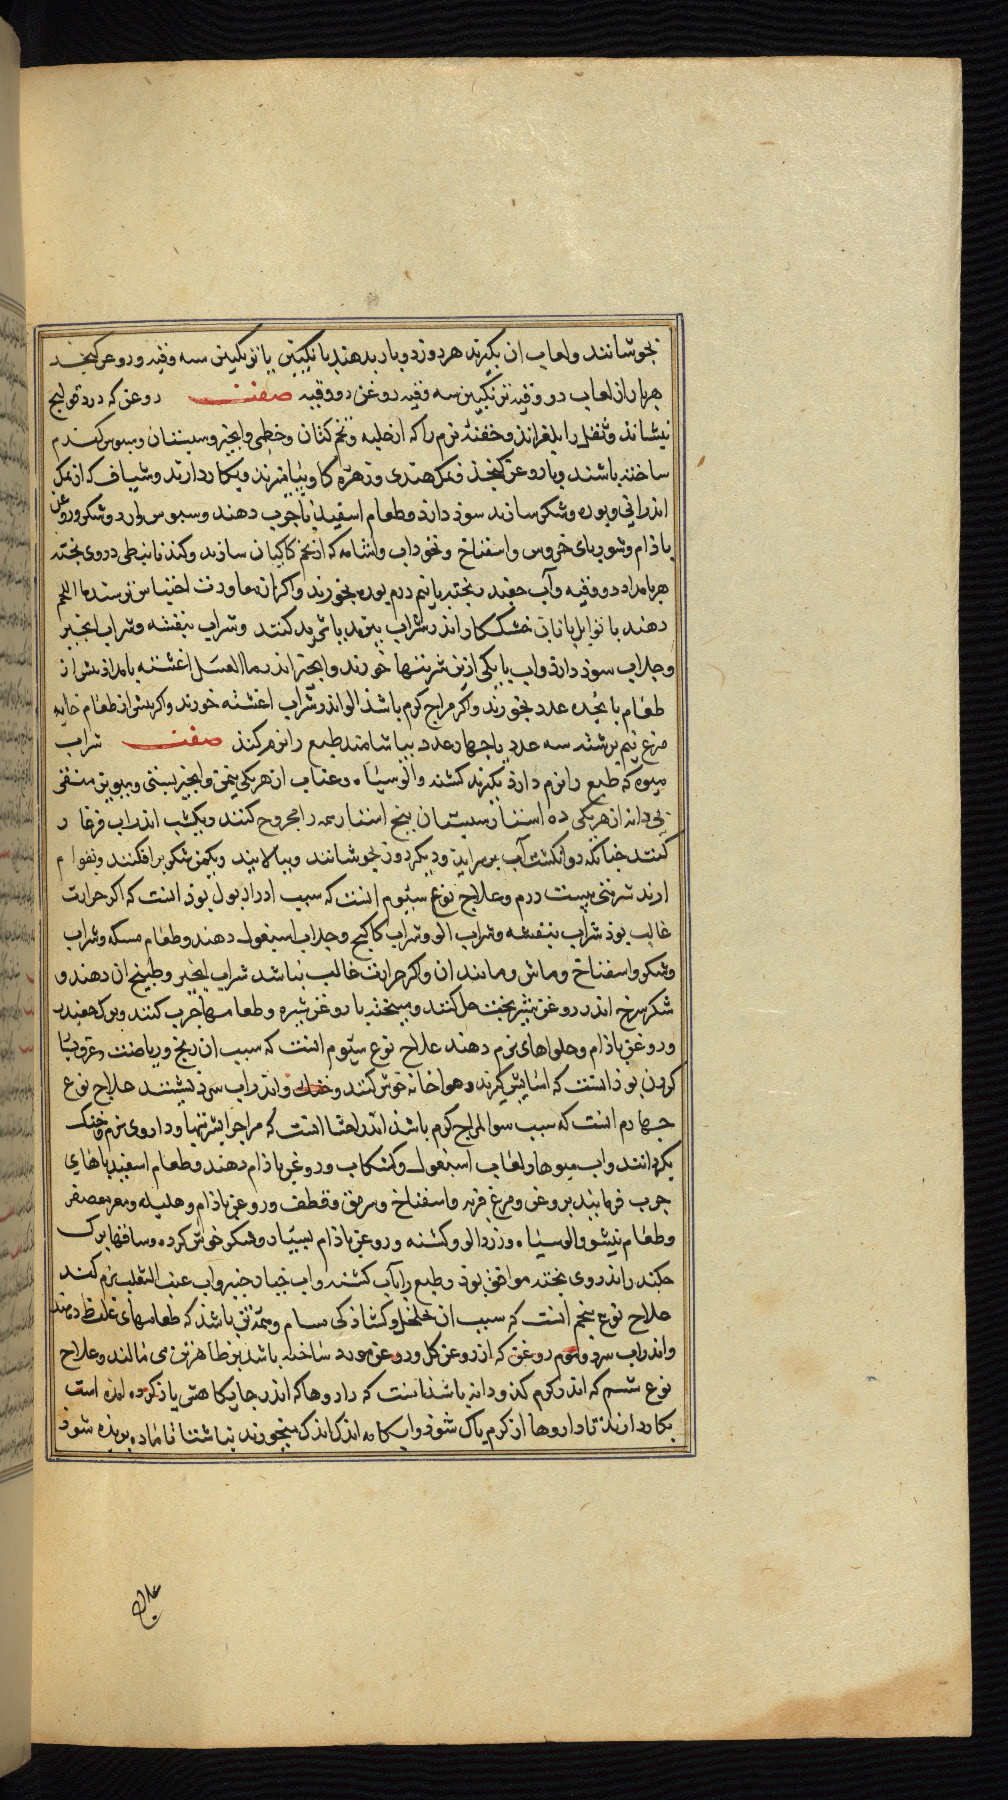 بجوشانند ولعاب ان بگیرند هر دوزد وبار بدهند با نکبین یا ترنکبین سه وقیه وروغن کنجد
هر بار از لعاب دو وقیه ترنکبین سه وقیه روغن دو وقیه صفت روغن که درد قولنج
بنشاند وثفل را بلغزاند وحقنه نرم را که از حلبه وتخم کتان وخطمی وانجیر وسبستان وسبوس کندم
ساخته باشند وبا روغن کنجد ونمک هندی وزهره کاو بیامیزند وبکار دارند وشیاف که از نمک
اندرانی وبوره وشکر سازند سوذ دارد وطعام اسفیدباجرب دهند وسبوس واردوشکر وروغن
باذام وشوربای خروس واسفناخ ونخوداب که از تخم کاکیان سازند وکندنا نبطی دروی بخته
هر بامداد دو وقیه وآب جغندر بخته با نیم درم بوره بخورند واکر ازین معاودت احتباس ترسند ما اللحم
دهند با توابل یا نان خشکار اندر شراب ببزند یا ثرید کنند وشراب بنفشه وشراب انجیر
وجلاب سوذ دارد واب با یکی ازین شربتها خورند وانجیر اندر ما العسل اغشته بامداذ بیش از
طعام پانجده عدد بخورند واکر مزاج کرم باشذ الو اندر شراب اغشته خورند واکر بیش از طعام خایه
مرغ نیم برشته سه عدد یا جهار عدد بیاشامند طبع را نرم کند صفت شراب
میوه که طبع را نرم دارد بکیرند کشته والو سیاه وعناب از هر یکی وانجیر بستی ومویز منقی
بی دانه از هر یکی ده استار سبستان بنج استار همه را مجروح کنند ویکشب اندر اب فرغار
کنند جنانکه دو انکشت آب بر سر اید ودیکر روز بجوشانند وببالایند ویکمن شکر برافکنند وبقوام
ارند شربتی بیست درم وعلاج نوع سیوم انست که سبب ادرار بول بوذ انست که اکر حرارت
غالب بوذ شراب بنفشه وشراب الو وشراب کاکنج وجلاب اسبغول دهند وطعام مسکه وشراب
وشکر واسفناخ وماش ومانند ان واکر حرارت غالب نباشد شراب انجیر وطبیخ ان دهند و
شکر سرخ اندر روغن شیربخت حل کنند وبیخته با روغن شیره وطعامها جرب کنند وبرک جغندر
وروغن باذام وحلواهای نرم دهند علاج نوع سیوم انست که سبب ان رنج وریاضت وعرق بسیا
کردن بوذ انست که اسایش کیرند وهوا خانه خوش کنند وخنک واندر اب سرد نشینند علاج نوع
جهارم انست که سبب سو المزاج کرم باشذ اندر احشا انست که مزاج را بشربتها وداروی نرم وخنک
بکردانند واب میوها ولعاب اسبغول وکشکاب وروغن باذام دهند وطعام اسفیدباهای
جرب فرمایند بروغن ومرغ فربه واسفناخ وسرمق وقطف وروغن باذام وهلیله وبمعصفر
وطعام نیشو والو سیاه وزردالو وکشنه وروغن باذام بسیار وشکر خوش کرده وساقهای برک
جکندر اندر وی بخته موافق بوذ وطبع را باب کشنه واب خیارجنبر واب عنب الثعلب نرم کند
علاج نوع بنجم انست که سبب ان تخلخل وکشاذکی مسام وسمن تن باشذ که طعامهای غلیظ دهند
واندر اب سرد وموم روغن که از روغن کل وروغن مورد ساخته باشد بر ظاهر تن می مالند وعلاج
نوع ششم که اندر کرم کدودانه باشذ انست که داروها که اندر جایکاهش یاذ کرده امذه است
بکار دارند تا داروها از کرم باک شوذ وابکامه اندک اندک میخورند بناشتا تا ماده بریذه شوذ
علاج